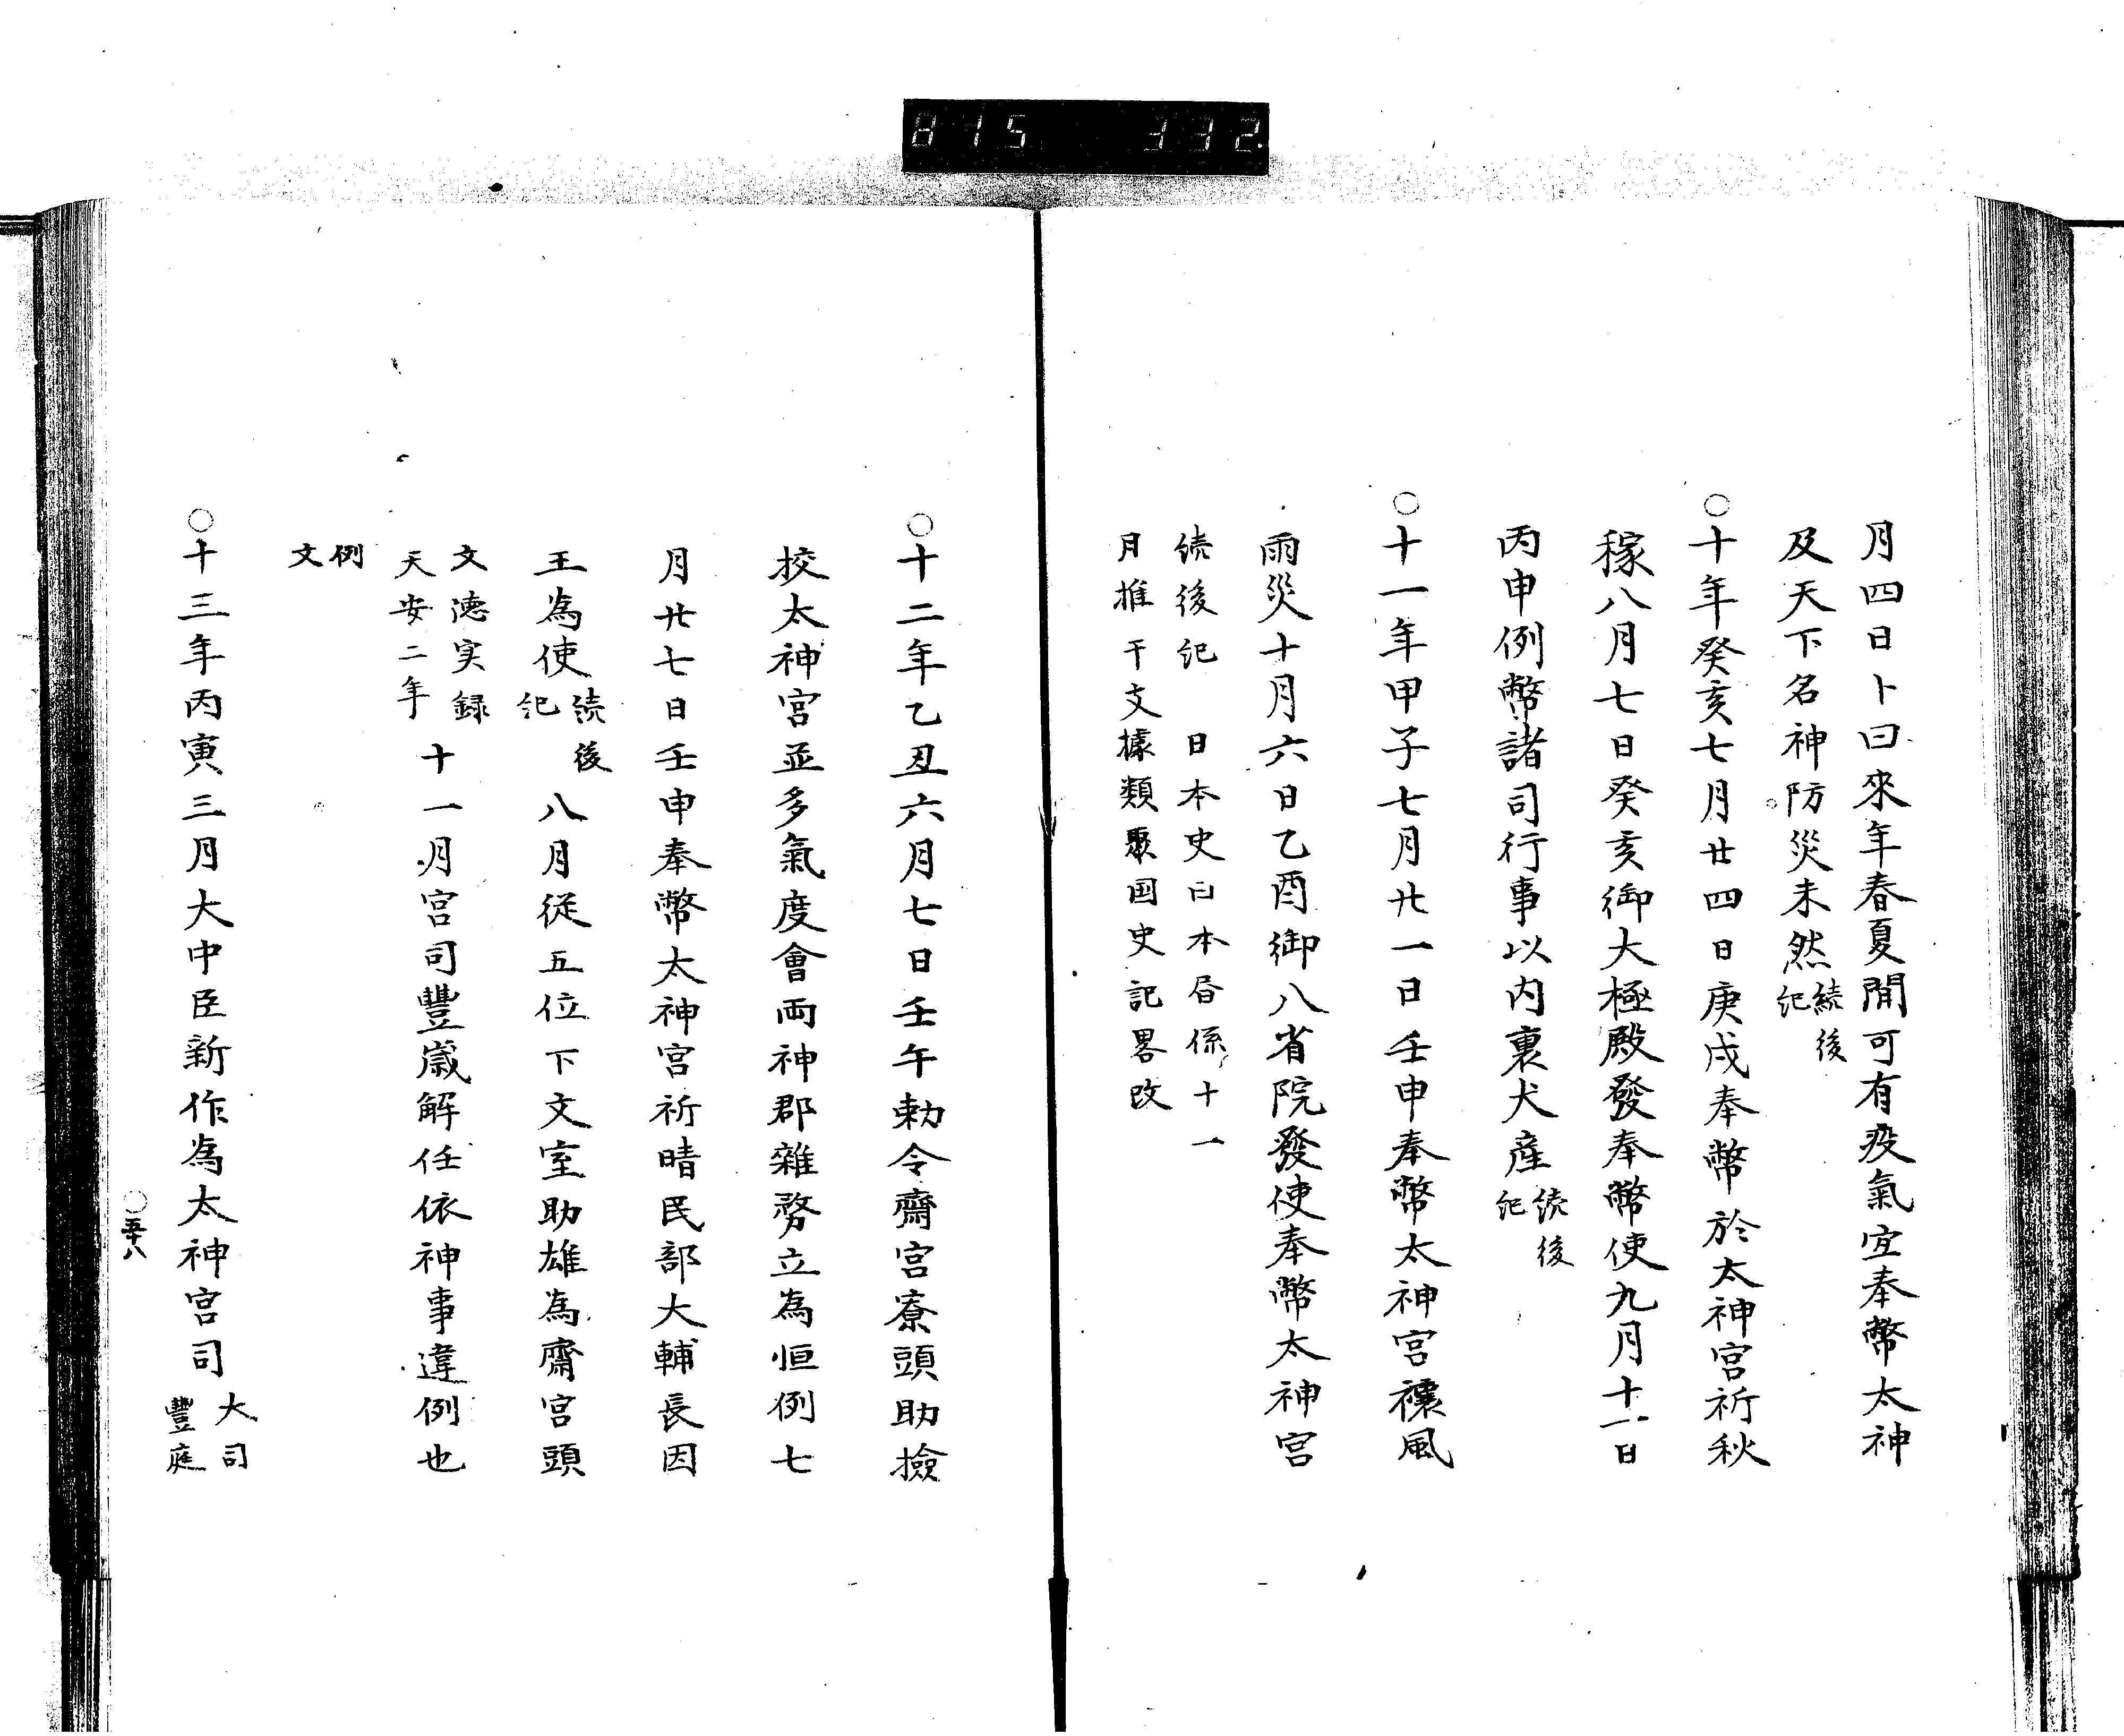 815 332
月四日卜曰來年春夏間可有疫氣宜奉幣太神
及天下名神防災未然続後紀
○十年癸亥七月廿四日庚戌奉幣於太神宮祈秋
稼八月七日癸亥御大極殿發奉幣使九月十一日
丙申例幣諸司行事以内裏犬産続後紀
○十一年甲子七月廿一日壬申奉幣太神宮禳風
雨災十月六日乙酉御八省院發使奉幣太神宮
続後紀 日本史曰本昏係十一
月推干支據類聚国史記畧改
○十二年乙丑六月七日壬午勅令齋宮寮頭助撿
挍太神宮並多氣度會両神郡雜務立為恒例七
月廿七日壬申奉幣太神宮祈晴民部大輔長因
王為使続後紀八月従五位下文室助雄為齋宮頭
文徳実録天安二年十一月宮司豐嵗解任依神事違例也
例文
○十三年丙寅三月大中臣新作為太神宮司大司豐庭
○五十八